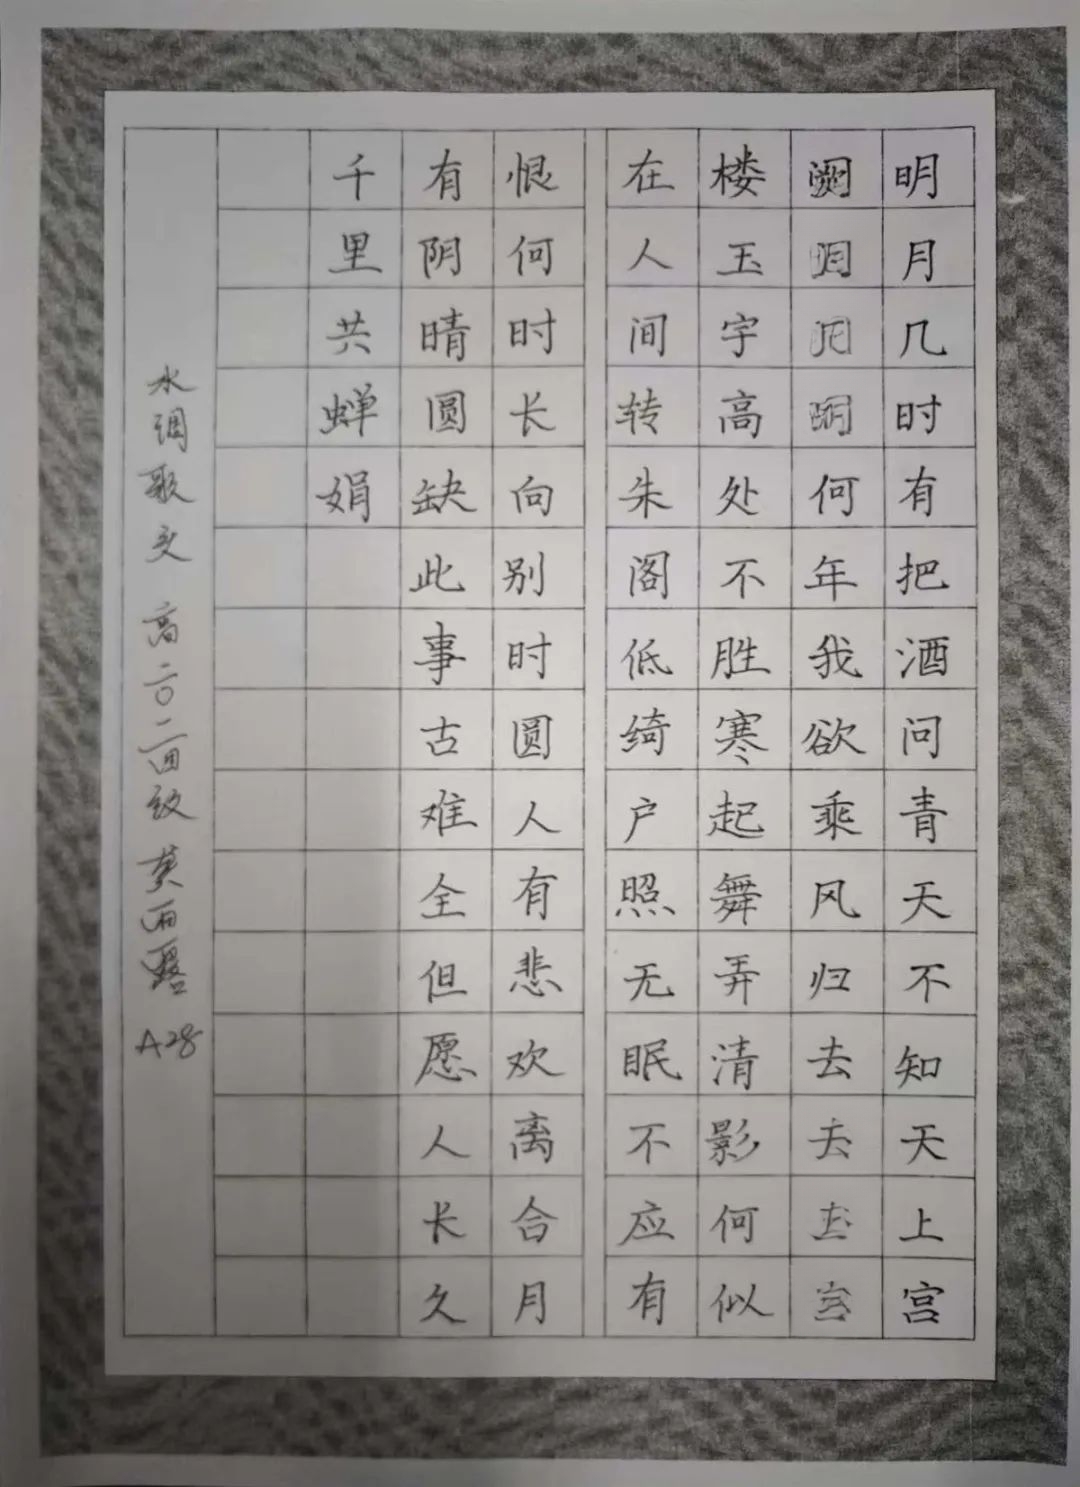 明月几时有把酒问青天不知天上宫
阙何年我欲乘风归去去
楼玉宇高处不胜寒起舞弄清影何似
在人间转朱阁低绮户照无眠不应有
恨何时长向别时圆人有悲欢离合月
有阴晴圆缺此事古难全但愿人长久
千里共蝉娟
水调歌头 高二〇二四级 雨露 A28